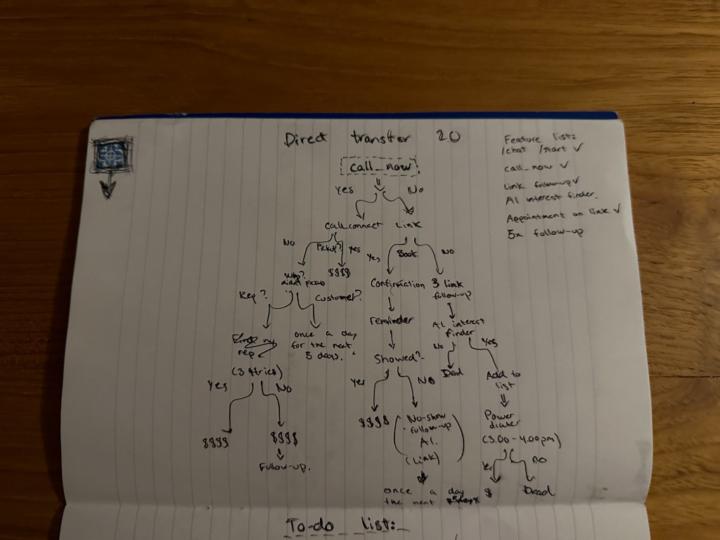 Direct transfer 2.0
Feature list:
/chat /start ✓
call_now ✓
Link follow-up ✓
A.I. interest finder.
Appointment on link ✓
5x follow-up
call_now
Yes No
call connect Link
No Pickup? Yes Yes Book No
who? didnt pickup $$$$ Confirmation 3 link follow-up
Rep? Customer? reminder A.I. interest finder
rep. once a day for the next 5 days. Showed? No Yes
(3 tries) Dead Add to list
Yes No Yes No
$$$$ $$$$ $$$$ No-show follow-up A.I. (Link) Power dialer (3.00 - 4.00pm)
Follow-up. Yes No
once a day $ Dead
the next
To-do list: